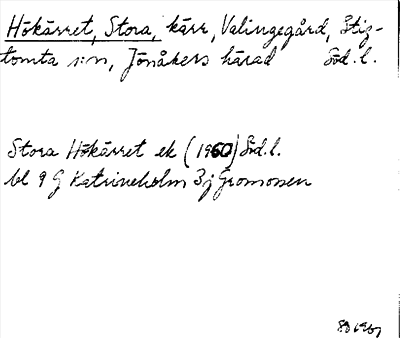 Hökärret, Stora, kärr, Valingegård, Stig-
tomta s:n, Jönåkers härad Söd. l.
Stora Hökärret ek (1960) Söd. l.
bl 9 G Katrineholm 3j Gromossen